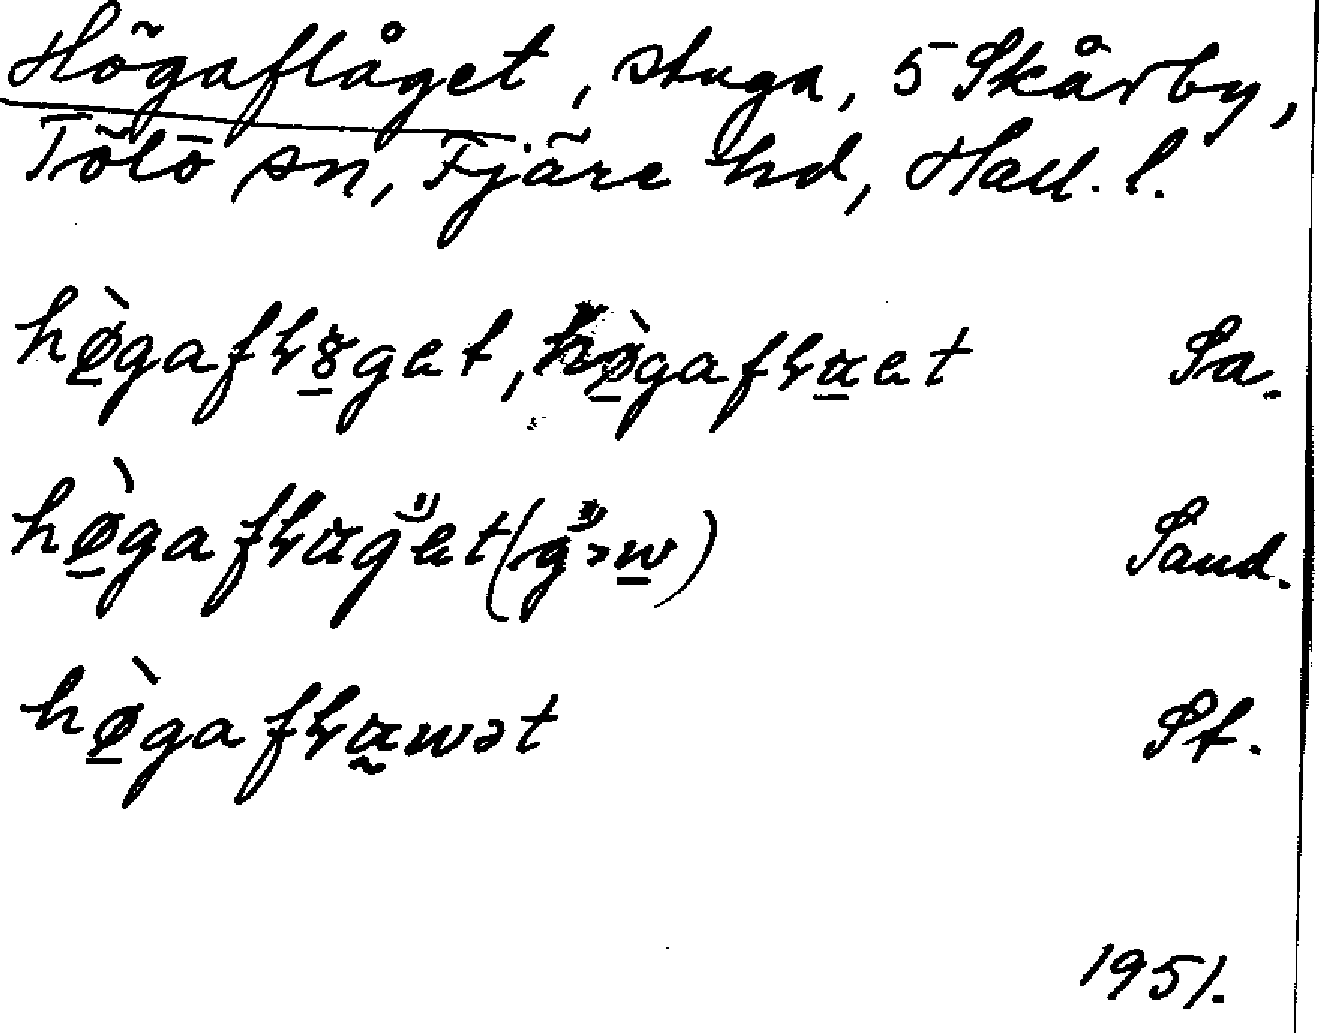 Högaflåget, stuga, 5 Skårby,
Tölö sn, Fjäre hd, Hall. l.
hø̲̀gafɫ8̲get, hø̲̀gafɫɑ̲et Sa.
hø̲̀gafɫɑget (g>w̲) Sand.
hø̲̀gafɫɑ̰wət St.
1951.